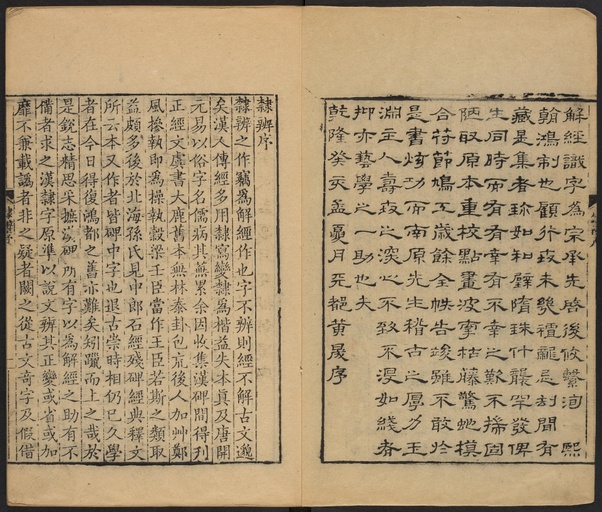 解經識字爲宋承先啓後攸繫洵熙
翰鴻制也顧行攷未幾禮龎忌刦閒有
藏是集者珎如和璧隋珠什襲罕發俾
生同時而有有幸有不幸之歎不揣固
陋取原本重校點畫波寧枯藤驚虵模
合符節鳩工歲餘全帙告竣雖不敢於
是書炫功而南原先生稽古之厚力玉
淵主人嵩攷之深心不致不湮如綫者
抑亦藝學之一助也夫
乾隆癸亥孟夏月天都黃晟序
隸辨序
隸辨之作竊爲解經作也字不辨則經不解古文邈
矣漢人傳經多用隸寫變隸爲楷益失本眞及唐開
元易以俗字名儒病其蕪累余因收集漢碑閒得刋
正經文虙書大鹿舊本無林泰卦包㠩後人加艸鄭
風摻執即爲操執穀梁王臣當作王臣若斯之類取
益頗多後於北海孫氏見中郎石經殘碑經典釋文
所云本又作者皆碑中字也退古崇時相仍已久學
者在今日得復鴻都之舊亦難矣矧躐而上之哉於
是銳志精思采摭漢碑所有字以爲解經之助有不
備者求之漢隸字原準以說文辨其正變或省或加
靡不兼載譌者非之疑者闕之從古文奇字及假借